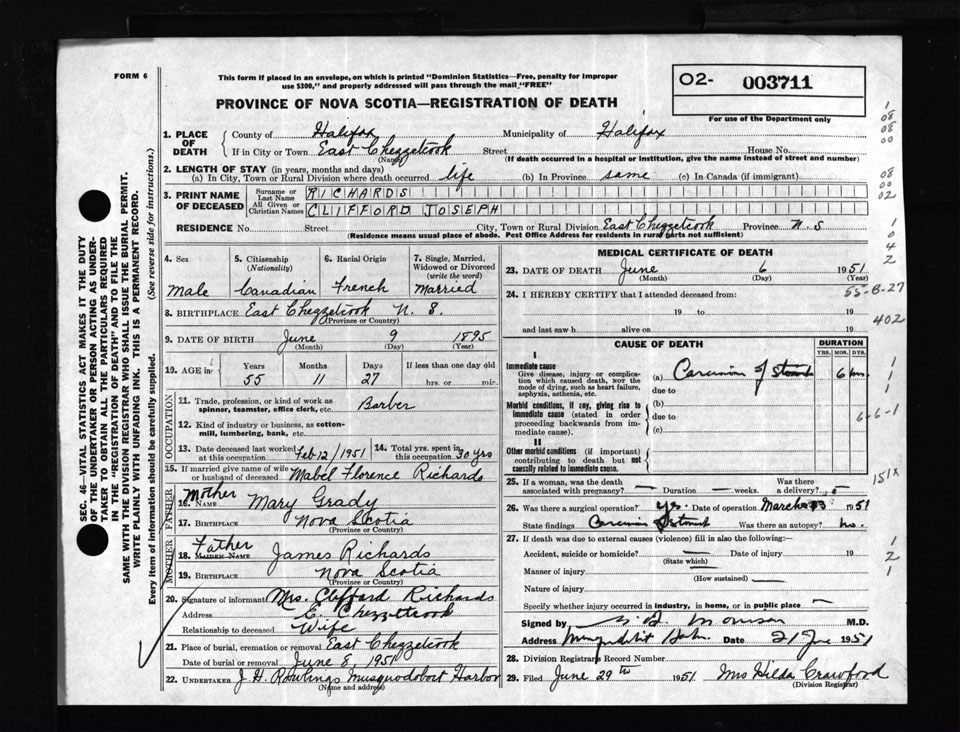 FORM 6
This form if placed in an envelope, on which is printed "Dominion Statistics—Free, penalty for improper
use $300," and properly addressed will pass through the mail "FREE"
O2- 003711
For use of the Department only
PROVINCE OF NOVA SCOTIA—REGISTRATION OF DEATH
SEC. 46—VITAL STATISTICS ACT MAKES IT THE DUTY
OF THE UNDERTAKER OR PERSON ACTING AS UNDER-
TAKER TO OBTAIN ALL THE PARTICULARS REQUIRED
IN THE "REGISTRATION OF DEATH" AND TO FILE THE
SAME WITH THE DIVISION REGISTRAR WHO SHALL ISSUE THE BURIAL PERMIT.
WRITE PLAINLY WITH UNFADING INK. THIS IS A PERMANENT RECORD.
Every item of information should be carefully supplied. (See reverse side for instructions.)
1. PLACE OF DEATH
County of Halifax Municipality of Halifax
If in City or Town East Chezzetcook Street House No.
(Name) (If death occurred in a hospital or institution, give the name instead of street and number)
2. LENGTH OF STAY (in years, months and days)
(a) In City, Town or Rural Division where death occurred life (b) In Province same (c) In Canada (if immigrant)
3. PRINT NAME OF DECEASED
Surname or Last Name RICHARDS
All Given or Christian Names CLIFFORD JOSEPH
RESIDENCE No. Street City, Town or Rural Division East Chezzetcook Province N.S
(Residence means usual place of abode. Post Office Address for residents in rural parts not sufficient)
4. Sex Male
5. Citizenship (Nationality) Canadian
6. Racial Origin French
7. Single, Married, Widowed or Divorced (write the word) Married
8. BIRTHPLACE East Chezzetcook N. S.
(Province or Country)
9. DATE OF BIRTH June 9 1895
(Month) (Day) (Year)
10. AGE in Years 55 Months 11 Days 27 If less than one day old hrs. or min.
OCCUPATION
11. Trade, profession, or kind of work as
spinner, teamster, office clerk, etc. Barber
12. Kind of industry or business, as cotton-
mill, lumbering, bank, etc.
13. Date deceased last worked at this occupation Feb 12/1951 14. Total yrs. spent in this occupation 30 yrs
15. If married give name of wife or husband of deceased Mabel Florence Richards
FATHER
Mother
16. Name Mary Grady
17. BIRTHPLACE Nova Scotia
(Province or Country)
MOTHER
Father
18. Maiden Name James Richards
19. BIRTHPLACE Nova Scotia
(Province or Country)
20. Signature of informant Mrs. Clifford Richards
Address E. Chezzetcook
Relationship to deceased Wife
21. Place of burial, cremation or removal East Chezzetcook
Date of burial or removal June 8, 1951
22. UNDERTAKER J. H. Rowlings Musquodoboit Harbor
(Name and address)
MEDICAL CERTIFICATE OF DEATH
23. DATE OF DEATH June 6 1951
(Month) (Day) (Year)
55-8-27
24. I HEREBY CERTIFY that I attended deceased from:
19 to 19
402
and last saw h alive on 19
CAUSE OF DEATH DURATION
YRS. MOS. DYS.
I
Immediate cause
Give disease, injury or complica-
tion which caused death, NOT the
mode of dying, such as heart failure,
asphyxia, asthenia, etc.
(a) 6 mos.
due to
Morbid conditions, if any, giving rise to
immediate cause (stated in order
proceeding backwards from im-
mediate cause).
(b)
due to
(c)
6-6-1
II
Other morbid conditions (if important)
contributing to death but not
causally related to immediate cause.
25. If a woman, was the death associated with pregnancy? — Duration — weeks. Was there a delivery?
151X
26. Was there a surgical operation? yes. Date of operation March 1951
State findings Was there an autopsy? no.
27. If death was due to external causes (violence) fill in also the following:—
Accident, suicide or homicide? — Date of injury 19
(State which)
Manner of injury
(How sustained)
Nature of injury
Specify whether injury occurred in industry, in home, or in public place —
Signed by M.D.
Address Date 21 June 1951
28. Division Registrars Record Number
29. Filed June 29th 1951 Mrs Hilda Crawford
(Division Registrar)